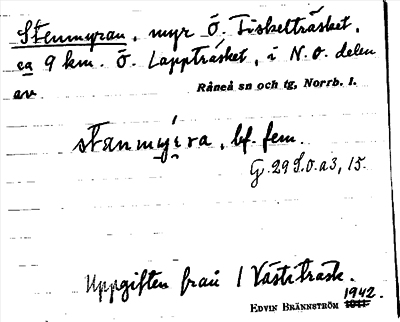 Stenmyran, myr Ö. Fisketträsket,
ca 9 km. Ö. Lappträsket, i N.O. delen
av
Råneå sn och tg, Norrb. l.
bf. fem.
G. 29 S.O. a3, 15.
Uppgiften från / Västiträsk.
1942.
EDVIN BRÄNNSTRÖM 1941